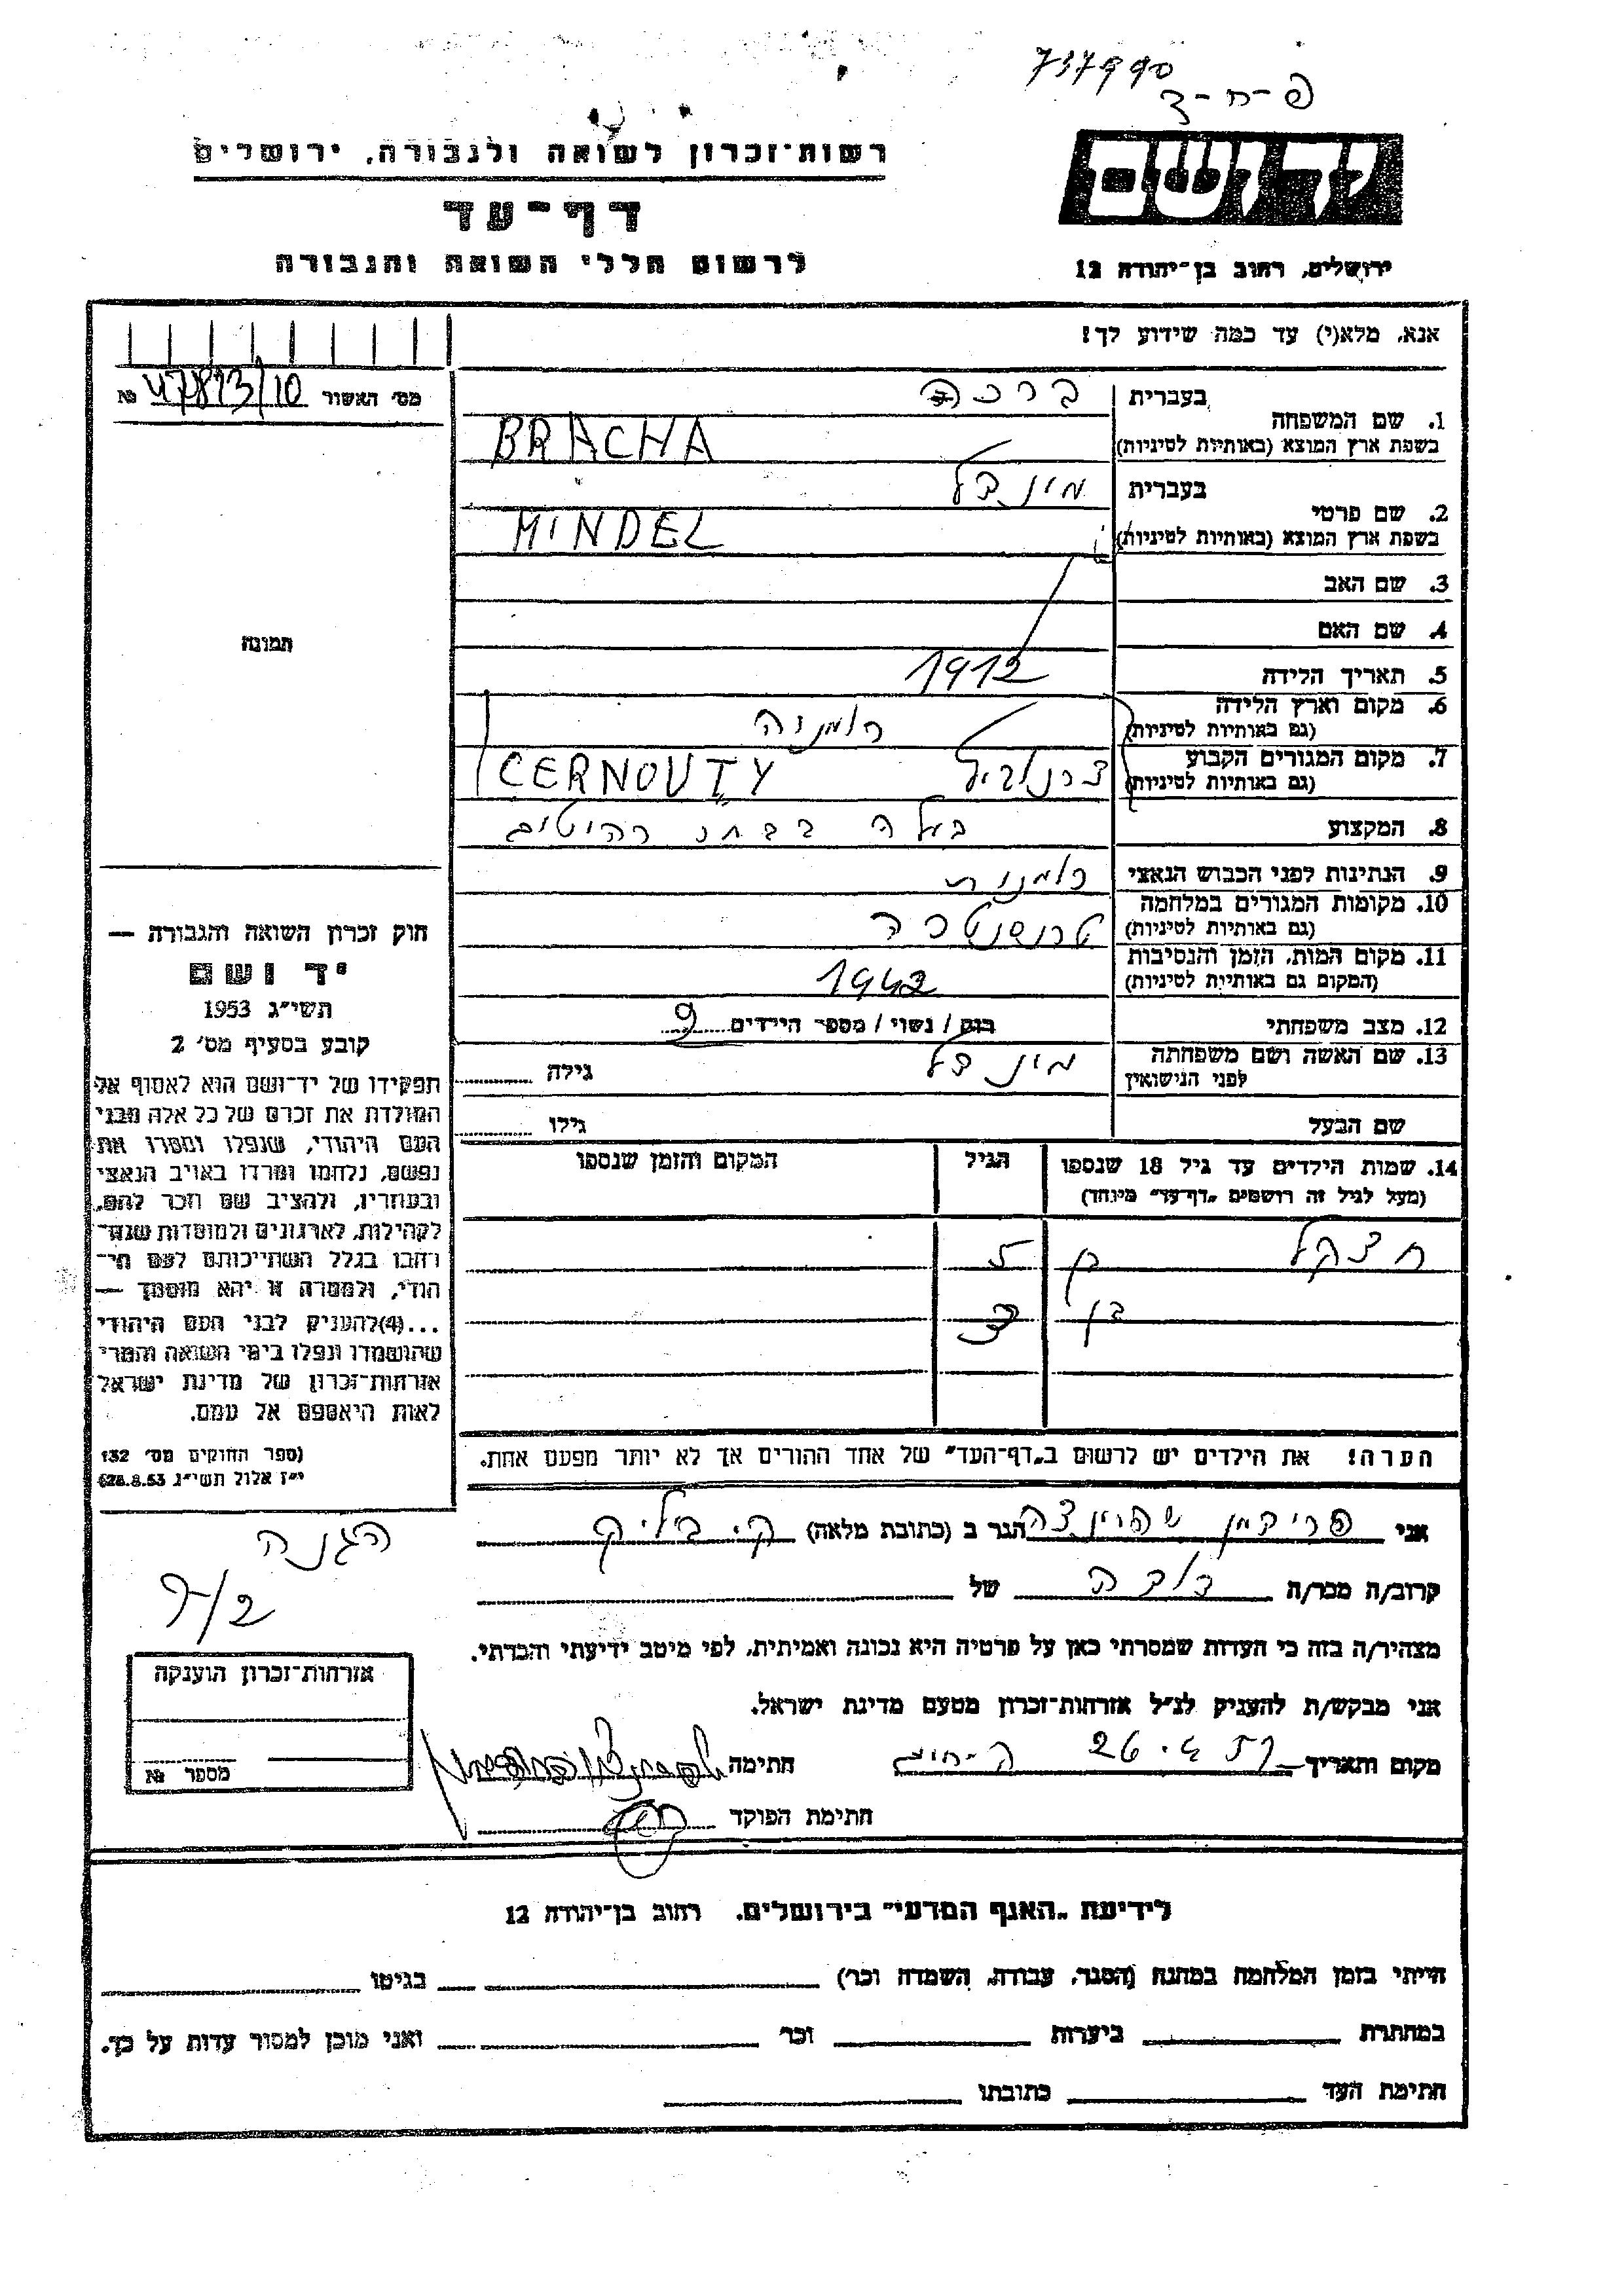 737990
פ-ח-ד
רשות־זכרון לשואה ולגבורה, ירושלים
דף־עד
לרשום חללי השואה והגבורה
יד ושם
ירושלים, רחוב בן־יהודה 12
אנא, מלא(י) עד כמה שידוע לך!
מס׳ האשור 47893/10 №
1. שם המשפחה
בעברית ברכה
בשפת ארץ המוצא (באותיות לטיניות) BRACHA
2. שם פרטי
בעברית מינדל
בשפת ארץ המוצא (באותיות לטיניות) MINDEL
3. שם האב
4. שם האם
תמונה
5. תאריך הלידה 1912
6. מקום וארץ הלידה רומניה
(גם באותיות לטיניות)
7. מקום המגורים הקבוע CERNOUTY
(גם באותיות לטיניות)
8. המקצוע רהיטים
9. הנתינות לפני הכבוש הנאצי רומנית
10. מקומות המגורים במלחמה
(גם באותיות לטיניות)
11. מקום המות, הזמן והנסיבות 1942
(המקום גם באותיות לטיניות)
12. מצב משפחתי רווק / נשוי / מספר הילדים 2
13. שם האשה ושם משפחתה מינדל גילה
לפני הנישואין
שם הבעל גילו
14. שמות הילדים עד גיל 18 שנספו הגיל המקום והזמן שנספו
(מעל לגיל זה רושמים „דף־עד״ מיוחד)
חצקל בן 5
בן 3
הערה! את הילדים יש לרשום ב„דף־העד״ של אחד ההורים אך לא יותר מפעם אחת.
חוק זכרון השואה והגבורה —
יד ושם
תשי״ג 1953
קובע בסעיף מס׳ 2
תפקידו של יד־ושם הוא לאסוף אל
המולדת את זכרם של כל אלה מבני
העם היהודי, שנפלו ומסרו את
נפשם, נלחמו ומרדו באויב הנאצי
ובעוזריו, ולהציב שם וזכר להם,
לקהילות, לארגונים ולמוסדות שנח־
רבו בגלל השתייכותם לעם הי־
הודי, ולמטרה זו יהא מוסמך —
...(4)להעניק לבני העם היהודי
שהושמדו ונפלו בימי השואה והמרי
אזרחות־זכרון של מדינת ישראל
לאות היאספם אל עמם.
(ספר החוקים מס׳ 132
י״ז אלול תשי״ג 28.8.53)
אני פרידמן שפרינצה הגר ב (כתובת מלאה) ק. ביליק
הגנה
קרוב/ה מכר/ה של
מצהיר/ה בזה כי העדות שמסרתי כאן על פרטיה היא נכונה ואמיתית, לפי מיטב ידיעתי והכרתי.
אני מבקש/ת להעניק לנ״ל אזרחות־זכרון מטעם מדינת ישראל.
מקום ותאריך חתימה
חתימת הפוקד
אזרחות־זכרון הוענקה
מספר №
לידיעת „האגף המדעי״ בירושלים, רחוב בן־יהודה 12
הייתי בזמן המלחמה במחנה (הסגר, עבודה, השמדה וכו׳) בגיטו
במחתרת ביערות וכו׳ ואני מוכן למסור עדות על כך.
חתימת העד כתובתו